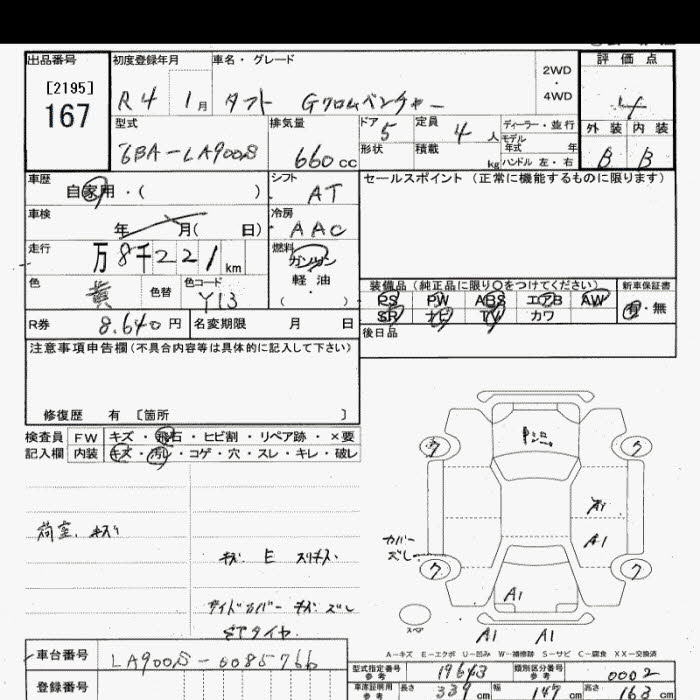 出品番号 初度登録年月 車名・グレード 2WD・4WD 評価点
[2195]
167
R4 1月 タフト Gクロムベンチャー 4
型式 排気量 ドア 5 定員 4人 ディーラー・並行 外装 内装
6BA-LA900S 660cc 形状 積載 kg モデル年式 年 B B
ハンドル 左・右
車歴 自家用・( ) シフト AT セールスポイント(正常に機能するものに限ります)
車検 年 月( 日) 冷房 AAC
走行 万8千221km 燃料 ガソリン
軽・油
( )
色 黄 色替 色コード Y13
装備品(純正品に限り○をつけてください) 新車保証書
PS PW ABS エアB AW 有・無
SR ナビ TV カワ
R券 8,640円 名変期限 月 日 後日品
注意事項申告欄(不具合内容等は具体的に記入して下さい)
修復歴 有 〔箇所 〕
検査員 FW キズ・飛石・ヒビ割・リペア跡・×要
記入欄 内装 キズ・汚レ・コゲ・穴・スレ・キレ・破レ
荷室、キズ
キズ E スリキズ
サイドカバー キズ ズレ
カバー
ズレ
ワ ワ
ワ ワ
A1
A1
A1
A1 A1
スペア
A-キズ E-エクボ U-凹み W-補修跡 S-サビ C-腐食 XX-交換済
車台番号 LA900S-0085766
型式指定番号 参考 19643 類別区分番号 参考 0002
登録番号 車庫証明用 参考 長さ 339cm 幅 147cm 高さ 163cm